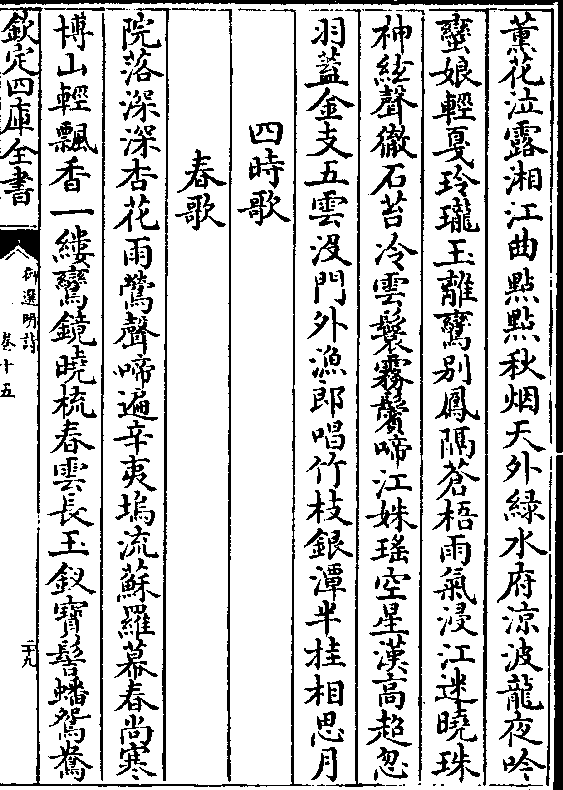 薫花泣露湘江曲點點秋烟天外緑水府涼波龍夜吟
蠻娘輕戛玲瓏玉離鸞别鳳隔蒼梧雨氣浸江迷曉珠
神絃聲徹石苔冷雲鬟霧鬢啼江姝瑤空星漢髙超忽
羽蓋金支五雲沒門外漁郎唱竹枝銀潭半挂相思月
四時歌
春歌
院落深深杏花雨鶯聲啼遍辛夷塢流蘇羅幕春尚寒
博山輕飄香一縷鸞鏡曉梳春雲長玉釵寶髻蟠鴛鴦
欽定四庫全書
御選明詩
卷十五
二十九